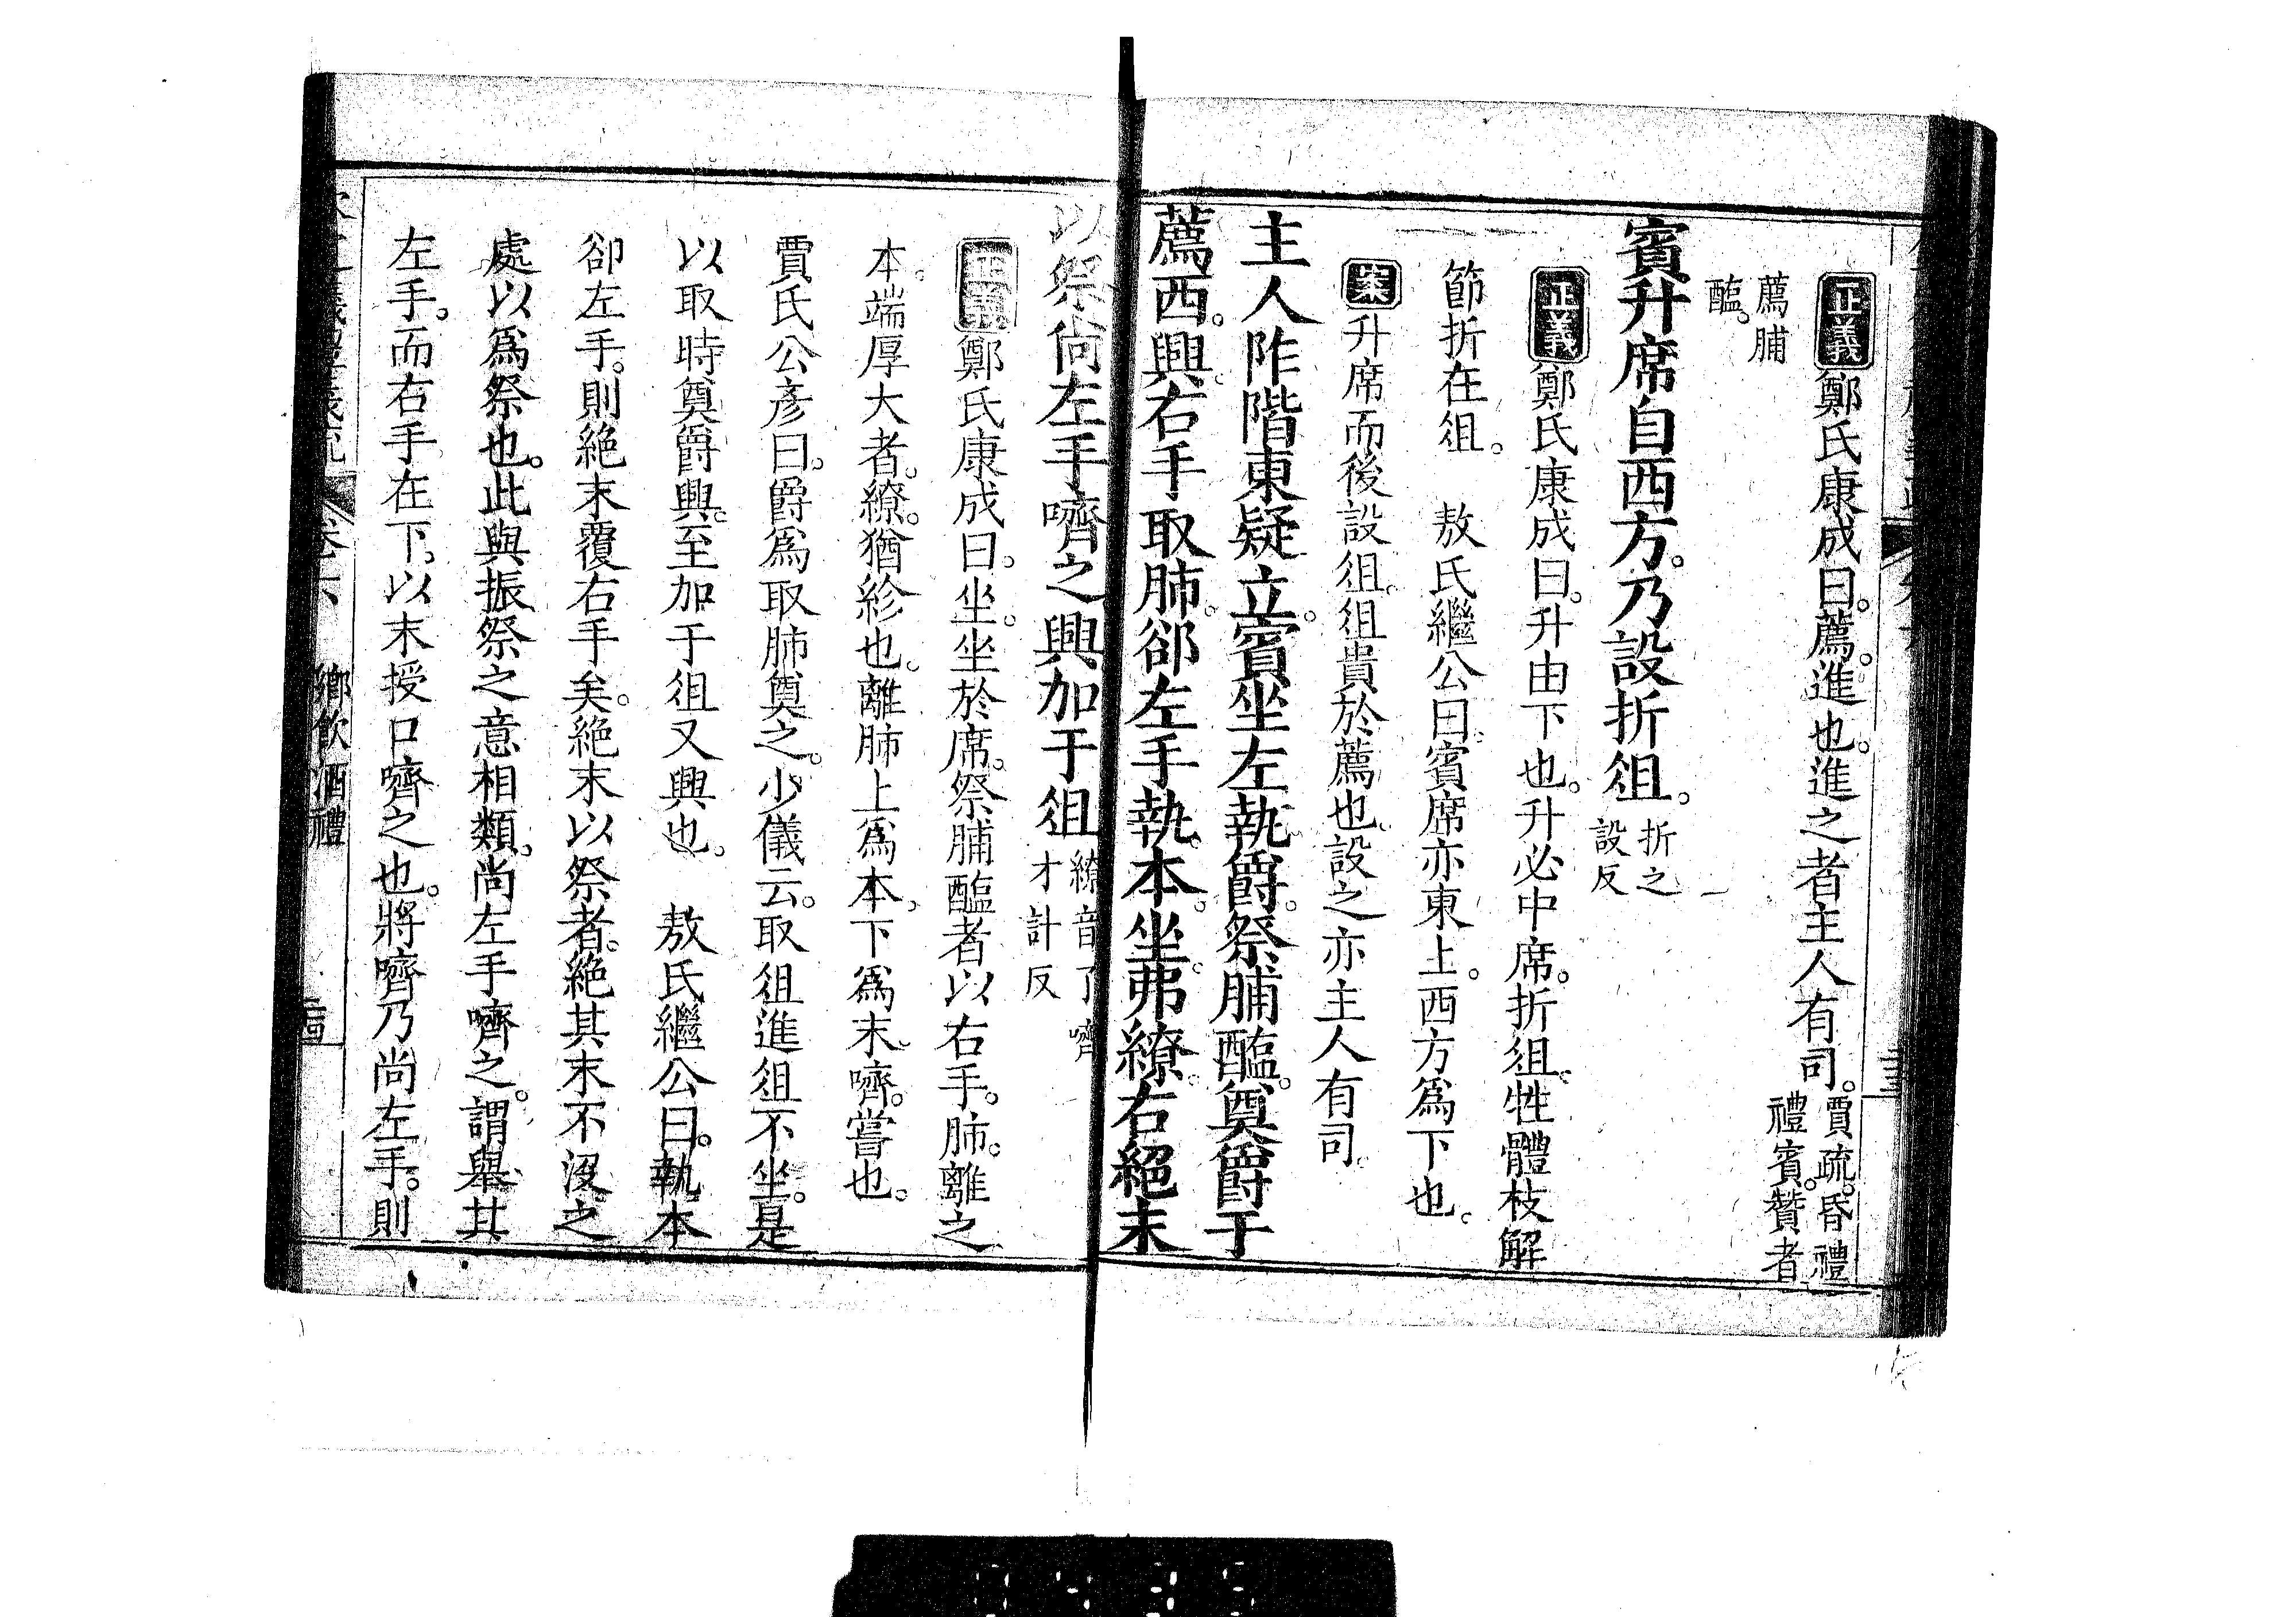 正義鄭氏康成曰。薦。進也。進之者主人有司。賈疏。昏禮禮賓。贊者
薦脯醢。
賓升席自西方。乃設折俎。折之設反
正義鄭氏康成曰。升由下也。升必中席。折俎。牲體枝解
節折在俎。 敖氏繼公曰。賓席亦東上。西方爲下也。
案升席而後設俎。俎貴於薦也。設之亦主人有司。
主人阼階東疑立。賓坐左執爵。祭脯醢。奠爵于
薦西。興。右手取肺。卻左手執本。坐。弗繚。右絕末
以祭。尚左手嚌之。興加于俎。繚音了嚌才計反
正義鄭氏康成曰。坐。坐於席。祭脯醢者以右手。肺。離之
本。端厚大者。繚。猶紾也。離肺上爲本。下爲末。嚌。嘗也。
賈氏公彥曰。爵爲取肺奠之。少儀云。取俎進俎不坐。是
以取時奠爵興。至加于俎又興也。 敖氏繼公曰。執本
卻左手。則絕末覆右手矣。絕末以祭者。絕其末不沒之
處以爲祭也。此與振祭之意相類。尚左手嚌之。謂舉其
左手。而右手在下。以末授口嚌之也。將嚌乃尚左手。則
鄉飲酒禮